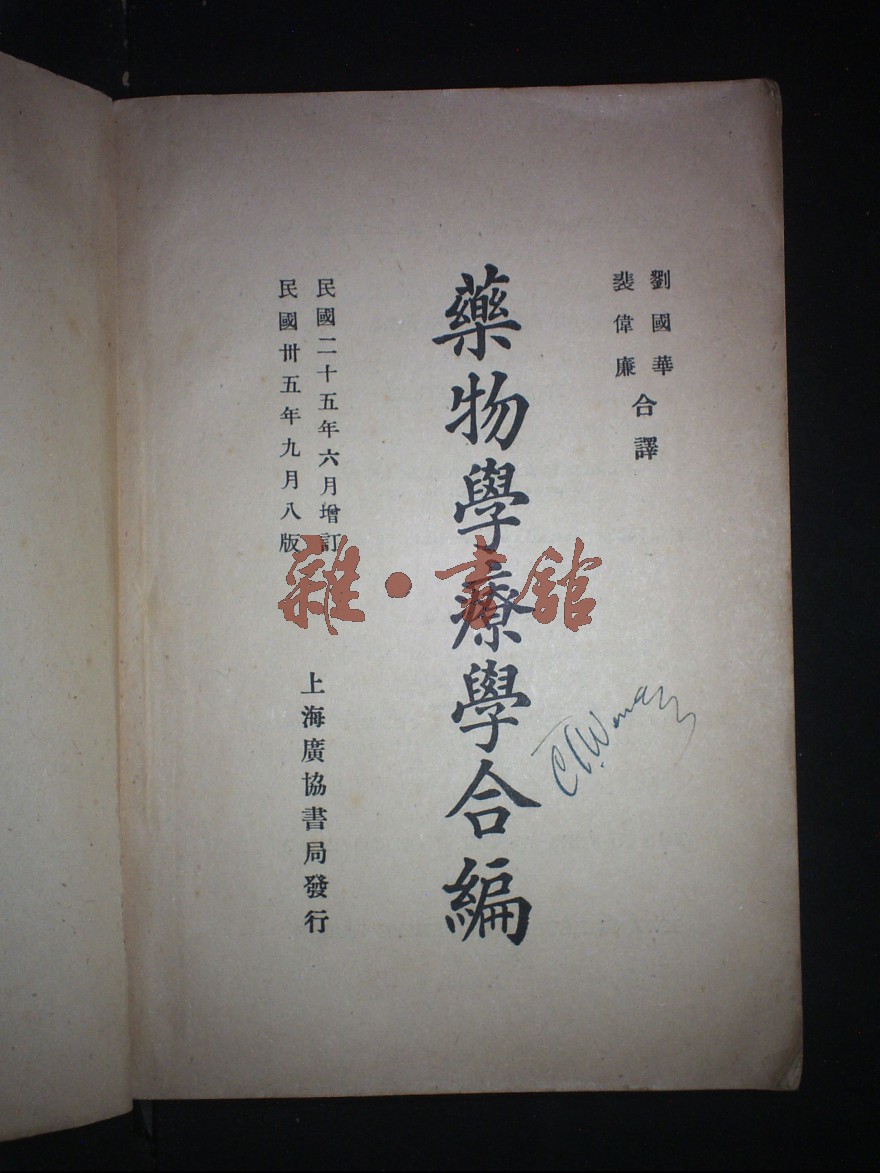 劉國華
裴偉廉
合譯
藥物學療學合編
民國二十五年六月增訂
民國卅五年九月八版
上海廣協書局發行
雜·書館